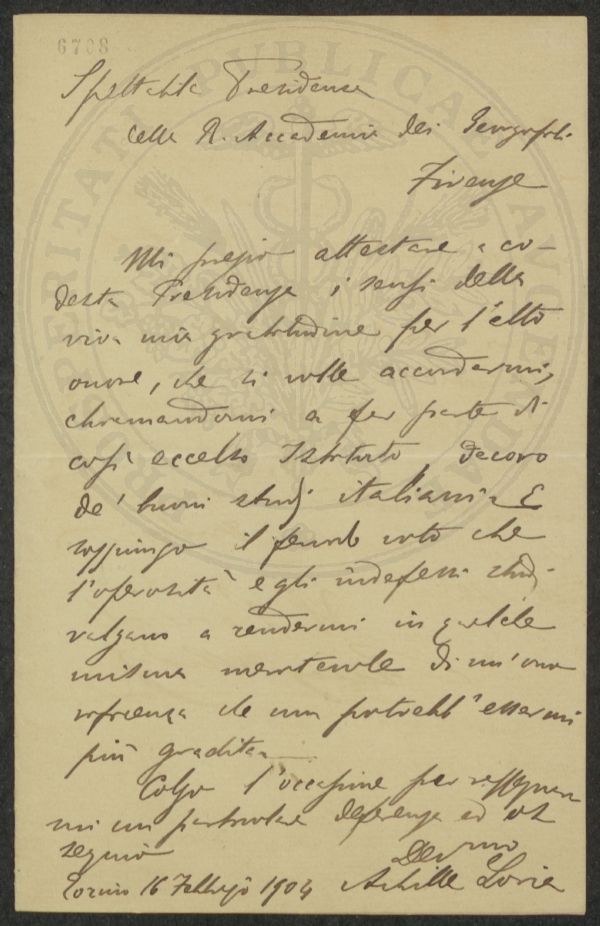 6708
Spettabile Presidenza
della R. Accademia dei Georgofili
Firenze
Mi pregio attestare a co-
desta Presidenza i sensi della
viva mia gratitudine per l'alto
onore, che si volle accordarmi,
chiamandomi a far parte di
così eccelso Istituto, decoro
de' buoni studj italiani. E
soggiungo il fervido voto che
l'operosità e gli indefessi studj
valgano a rendermi in qualche
misura meritevole di un'ono
rificenza che non potrebb'essermi
più gradita.
Colgo l'occasione per rassegnar
mi con particolare deferenza ed os
sequio
Dev.mo
Torino 16 Febbrajo 1904 Achille Loria
PROSPERITATI PUBLICAE AUGENDAE